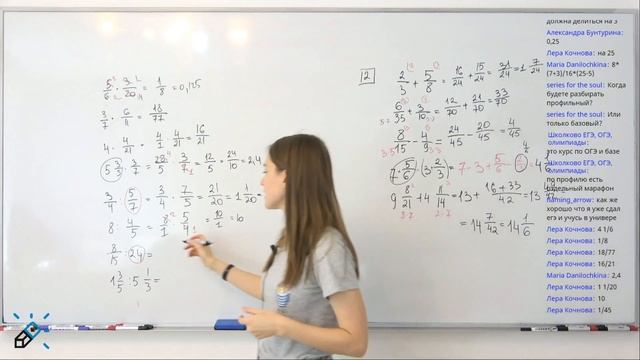 5/6 · 3/20 = 1/8 = 0,125
3/7 · 6/11 = 18/77
4 · 4/21 = 4/1 · 4/21 = 16/21
= 12/5 = 24/10 = 2,4
3/4 : 5/7 = 3/4 · 7/5 = 21/20 = 1 1/20
8 : 4/5 = 8/1 · 5/4 = 10/1 = 10
8/15 : 24 =
1 3/5 : 5 1/3 =
12
2/3 + 5/8 = 16/24 + 15/24 = 31/24 = 1 7/24
6/35 + 3/10 = 12/70 + 21/70 = 33/70
8/15 - 4/9 = 24/45 - 20/45 = 4/45
7 5/6 - 3 2/3 = 7 - 3 + 5/6 -
9 8/21 + 4 11/14 = 13 + 16+33/42 = 13
= 14 7/42 = 14 1/6
должна делиться на 3
Александра Бунтурина:
0,25
Лера Кочнова: на 25
Maria Danilochkina: 8*
(7+3)/16*(25-5)
series for the soul: Когда
будете разбирать
профильный?
series for the soul: Или
только базовый?
Школково ЕГЭ, ОГЭ,
олимпиады:
это курс по ОГЭ и базе
Школково ЕГЭ, ОГЭ,
олимпиады:
по профилю есть
отдельный марафон
naming_arrow: как же
хорошо что я уже сдал
егэ и учусь в универе
Лера Кочнова: 4 1/6
Лера Кочнова: 1/8
Лера Кочнова: 18/77
Лера Кочнова: 16/21
Maria Danilochkina: 2,4
Лера Кочнова: 1 1/20
Лера Кочнова: 10
Лера Кочнова: 1/45